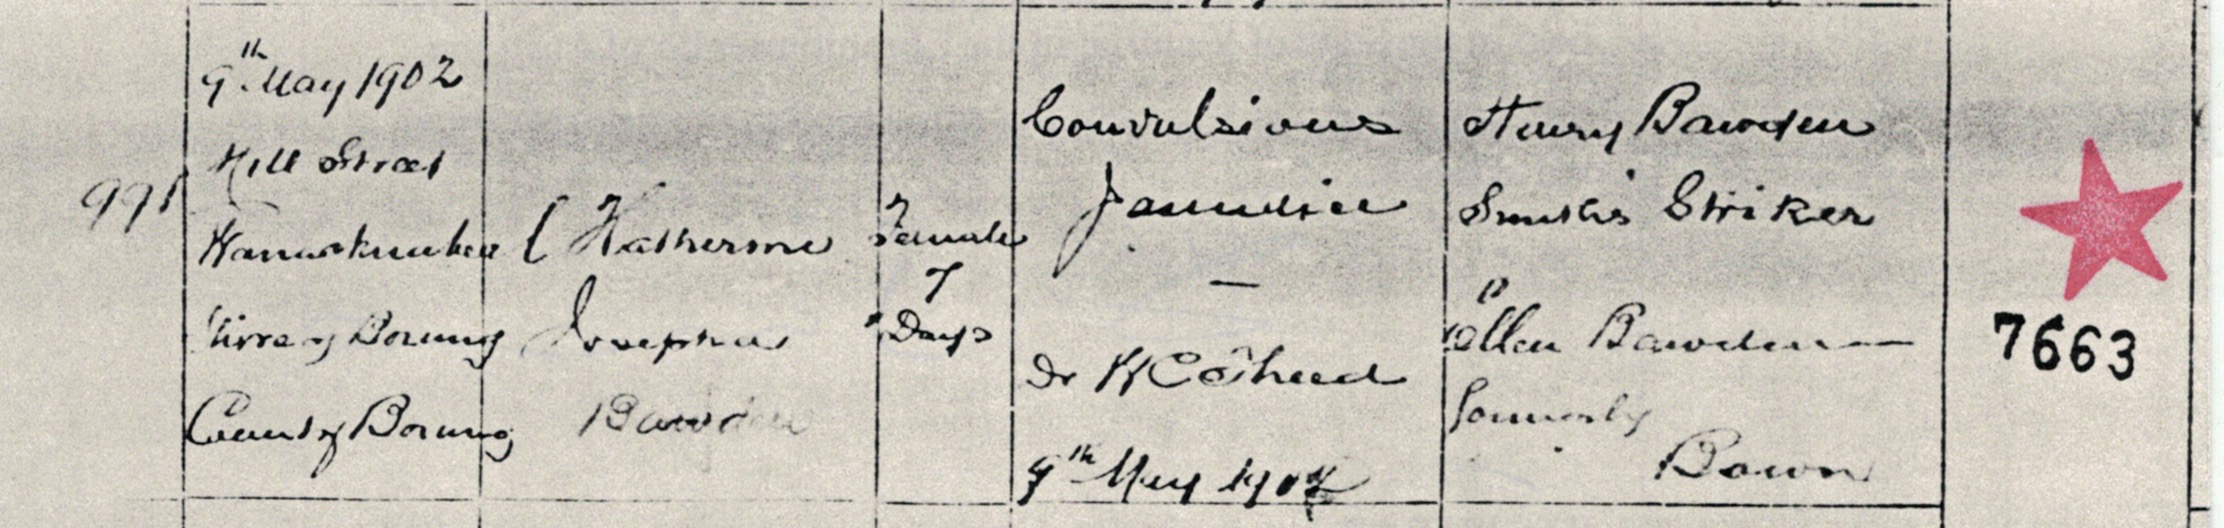 991
9th May 1902
Hill Street
Warracknabeal
Shire of Borung
County Borung
Katherine
Josephine
Bawden
Female
7
Days
Convulsions
Jaundice
—
Dr
9th May 1902
Henry Bawden
Smith's Striker
Ellen Bawden —
formerly
Bown
7663